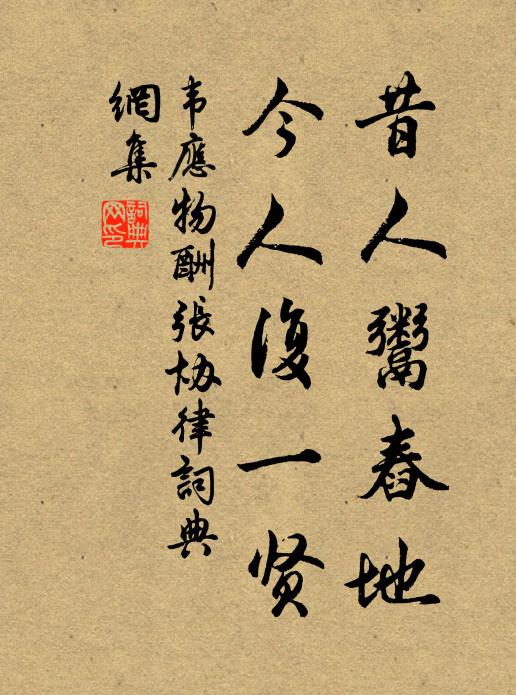 昔人鬻舂地
今人復一贤
韦應物酬張协律詞典
網集
詞典
网印